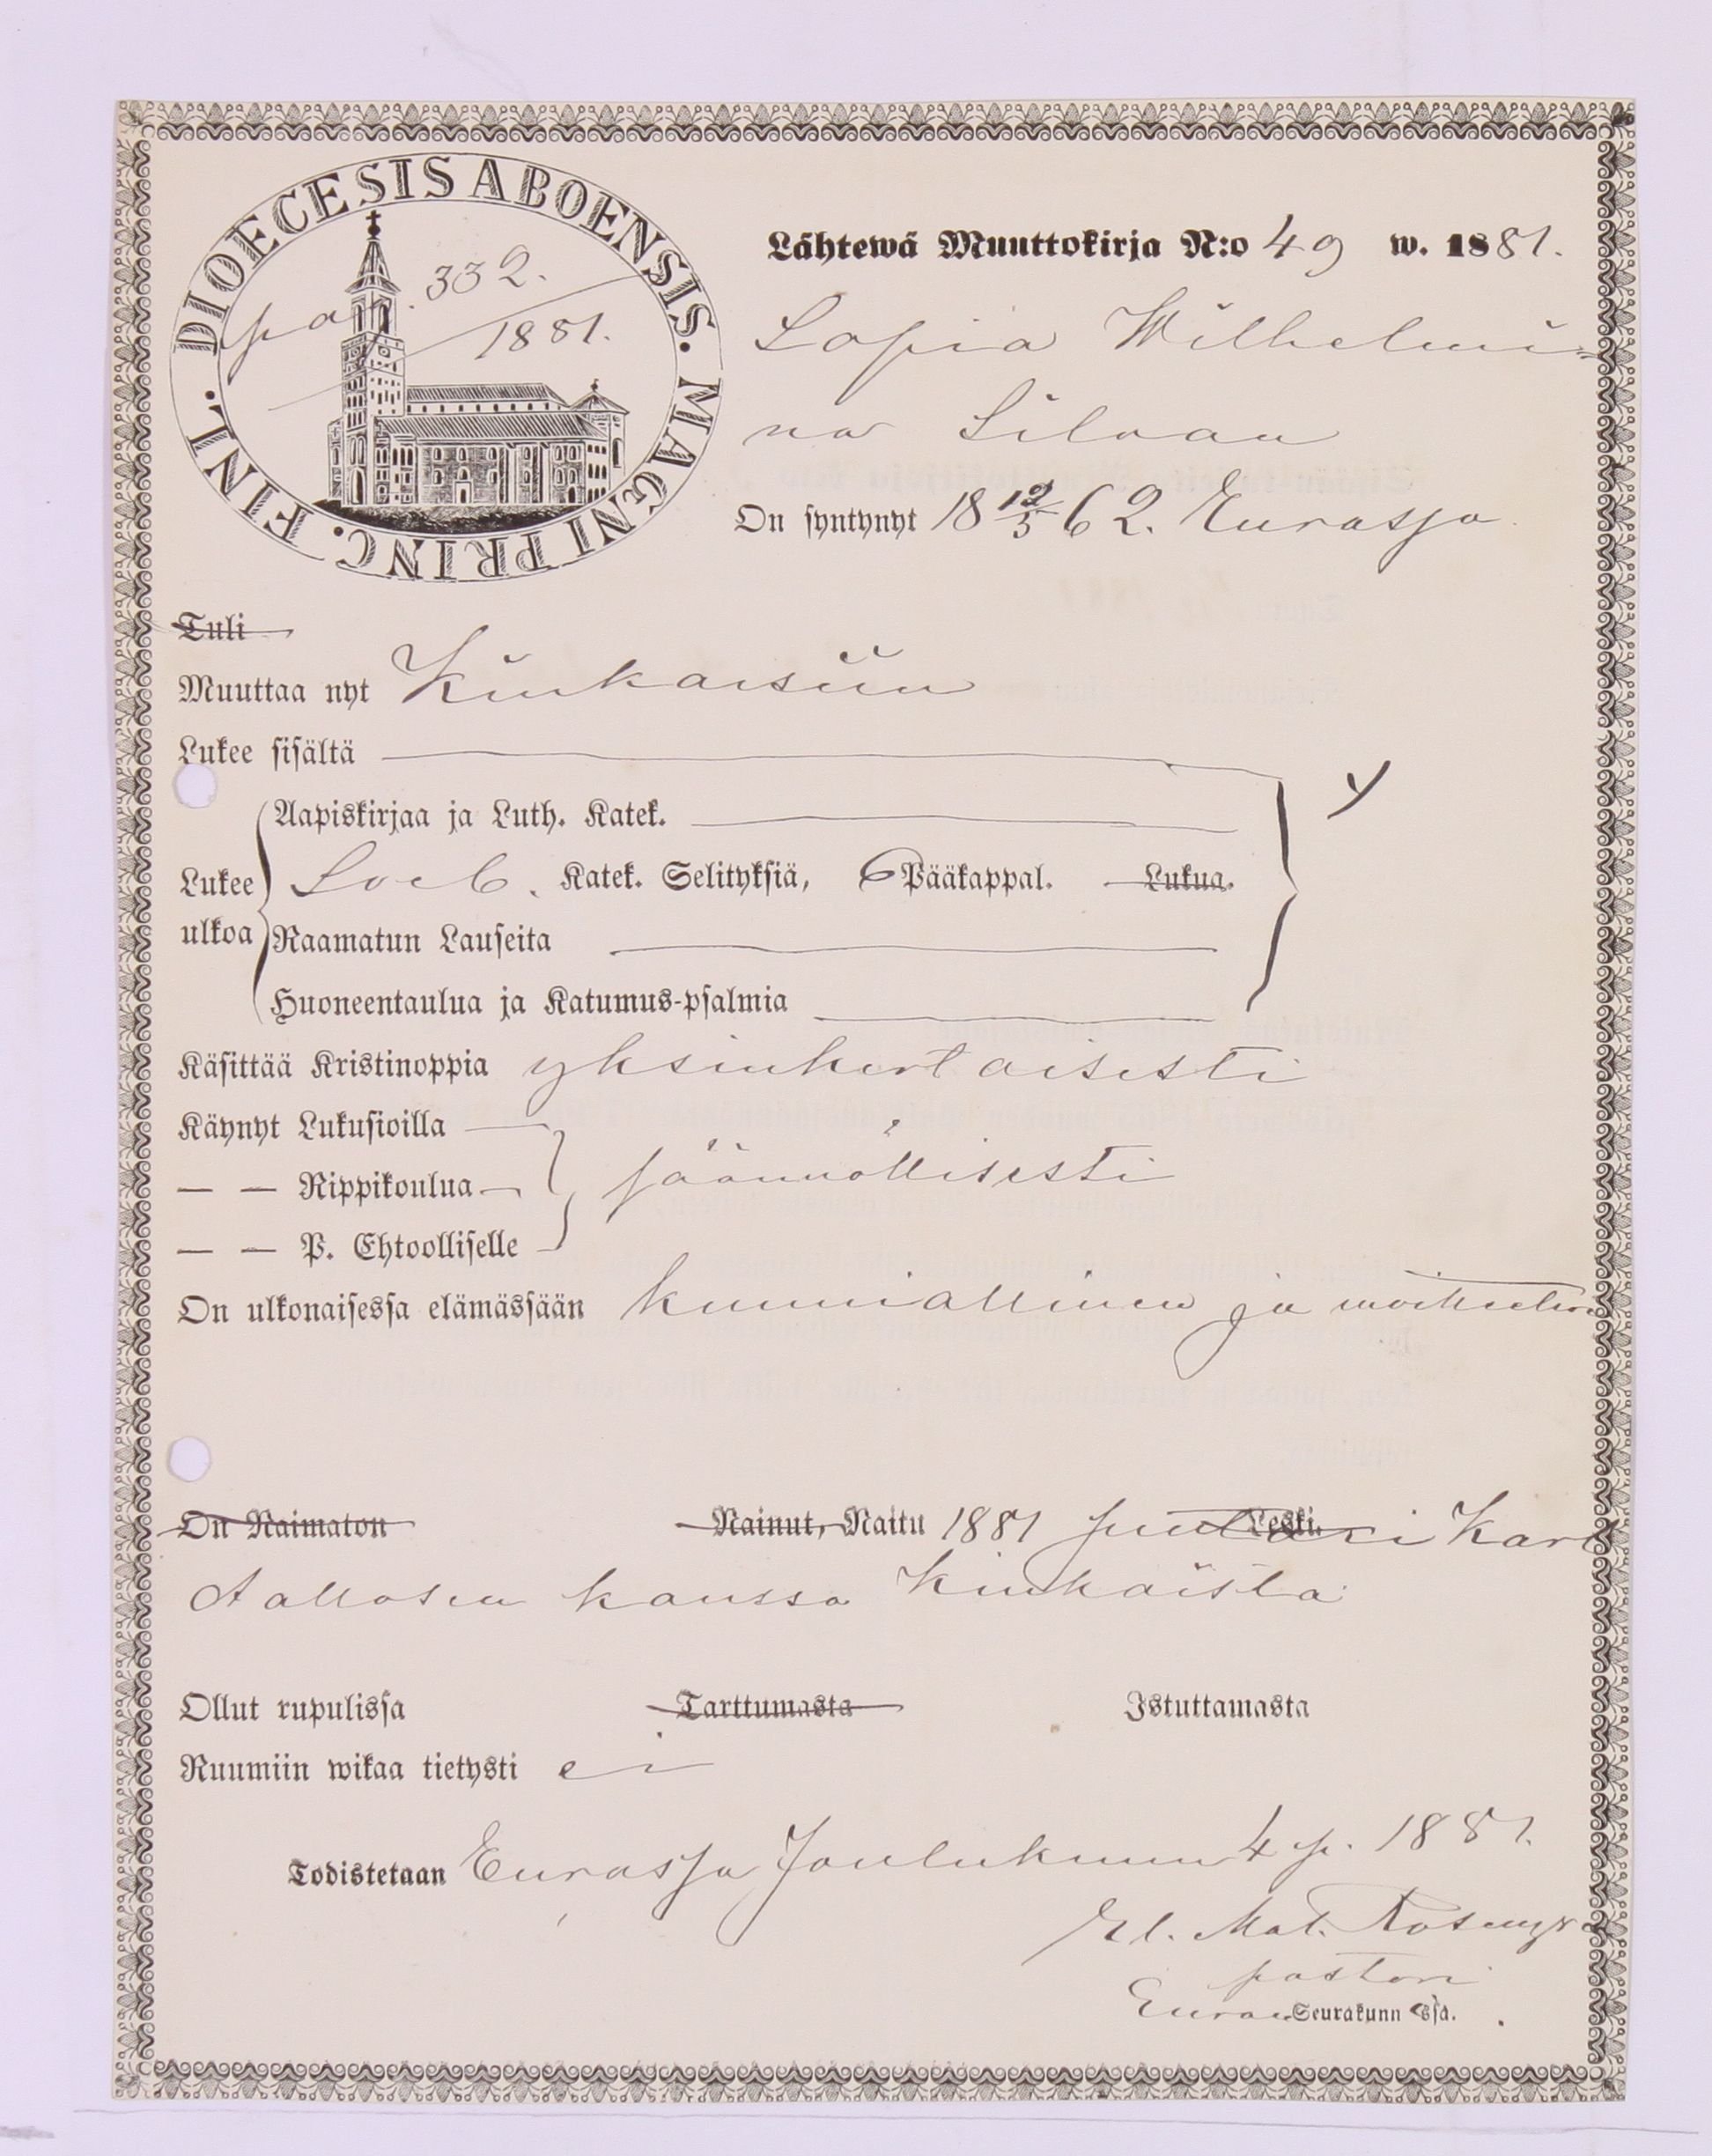 DIOECESIS ABOENSIS. MAGNI PRINC. FINL.
pag. 332.
1881.
Lähtewä Muuttokirja N:o 49 w. 1881.
Sofia Wilhelmi-
na Silvan
On syntynyt 18 12/5 62. Eurassa
Tuli
Muuttaa nyt Kiukaisiin
Lukee sisältä
Aapiskirjaa ja Luth. Katek.
Lukee ulkoa Katek. Selityksiä, 6 Pääkappal. Lukua.
Raamatun Lauseita
Huoneentaulua ja Katumus-psalmia
Käsittää Kristinoppia yksinkertaisesti
Käynyt Lukusioilla
— — Rippikoulua säännöllisesti
— — P. Ehtoolliselle
On ulkonaisessa elämässään kunniallinen ja
On Naimaton Nainut, Naitu 1881 Leski. Karl
Aallosen kanssa Kiukaisista
Ollut rupulissa Tarttumasta Istuttamasta
Ruumiin wikaa tietysti ei
Todistetaan Eurassa Joulukuun 4 p. 1881.
Mat.
pastori
Euran Seurakunnassa.